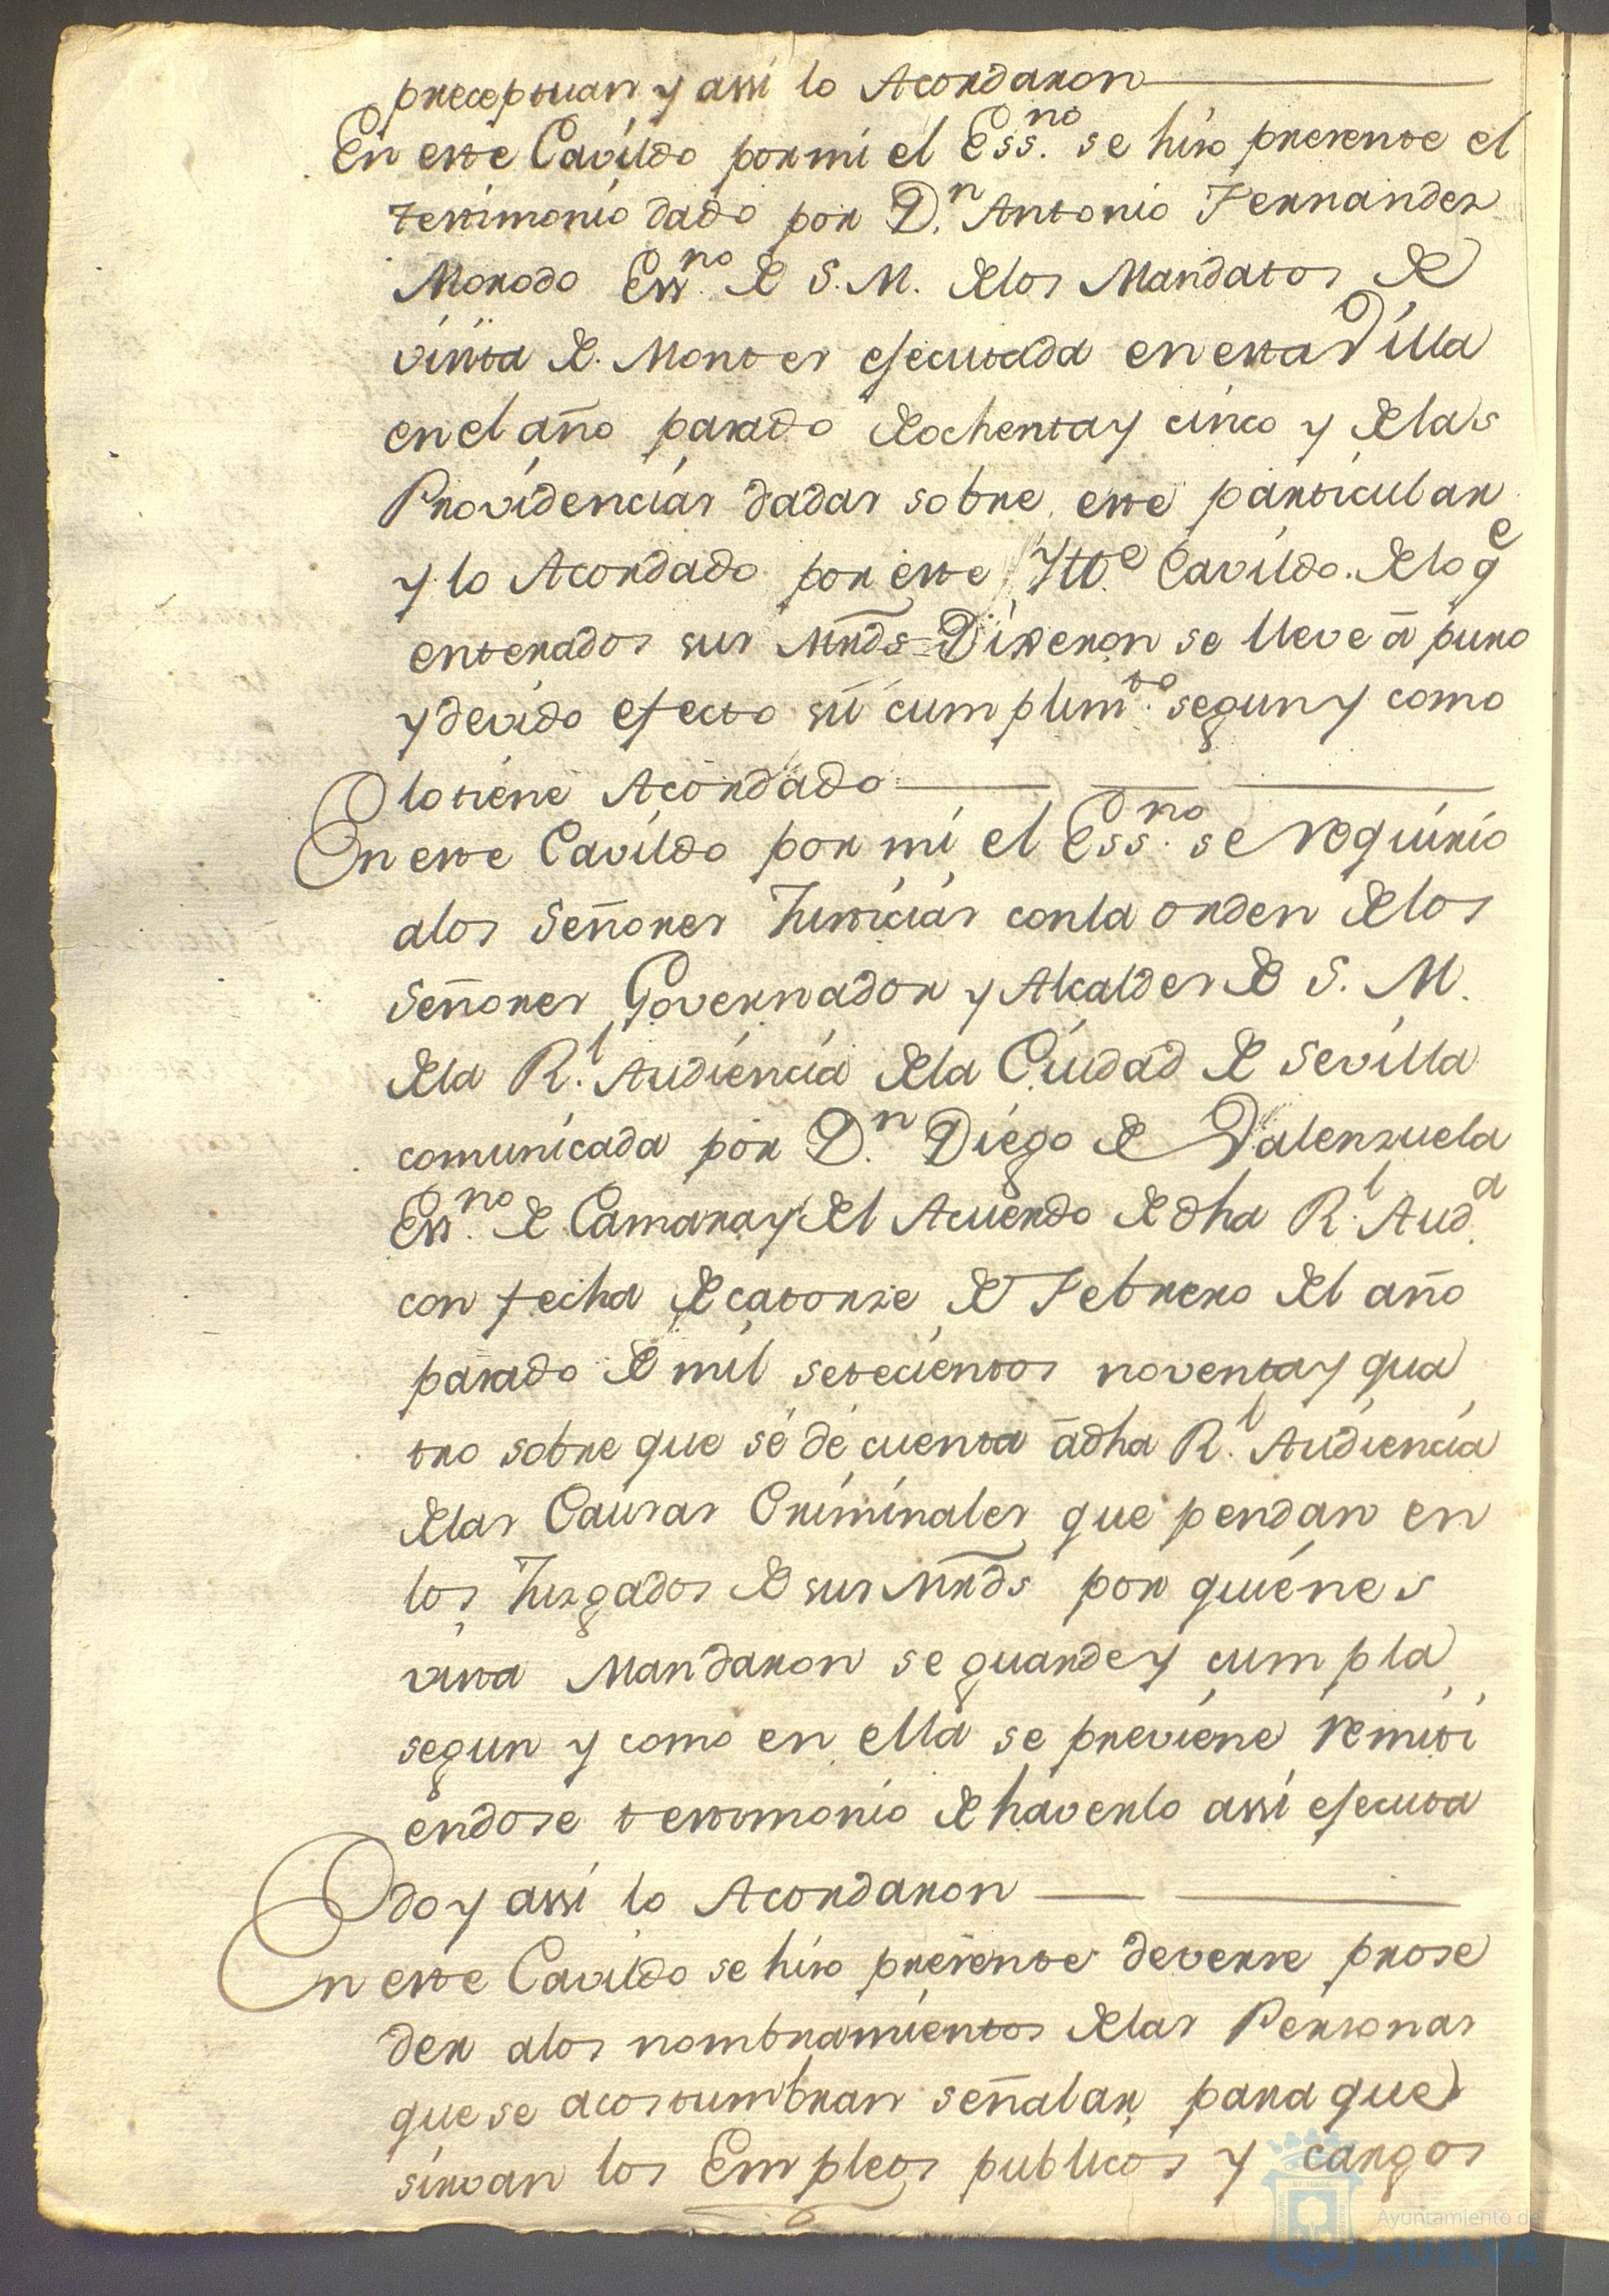 preceptuan y assi lo Acordaron
En este Cavildo por mi el Ess.no se hiso presente el
testimonio dado por D.n Antonio Fernandez
Morodo Ess.no de S. M. delos Mandatos de
visita de Montes esecutada en esta Villa
en el año pasado de ochenta y cinco y de las
Providencias dadas sobre este particular
y lo Acordado por este Ylt.e Cavildo. de lo q.e
enterados sus Mrds Dixeron se lleve â puro
y devido efecto su cumplim.to segun y como
lo tiene Acordado
En este Cavildo por mi el Ess.no se requirio
alos Señores Justicias con la orden delos
Señores Governador y Alcaldes de S. M.
dela R.l Audiencia dela Ciudad de Sevilla
comunicada por D.n Diego de Valenzuela
Ess.no de Camara y del Acuerdo de dha R.l Aud.a
con fecha de catorze de Febrero del año
pasado de mil setecientos noventa y qua
tro sobre que se dé cuenta â dha R.l Audiencia
delas Causas Criminales que pendan en
los Juzgados de sus Mrds por quienes
vista Mandaron se guarde y cumpla
segun y como en ella se previene remiti
endose testimonio de haverlo assi esecuta
do y assi lo Acordaron
En este Cavildo se hiso presente deverse prose
der alos nombramientos delas Personas
que se acostumbran señalar para que
sirvan los Empleos publicos y cargos
Ayuntamiento de
HUELVA